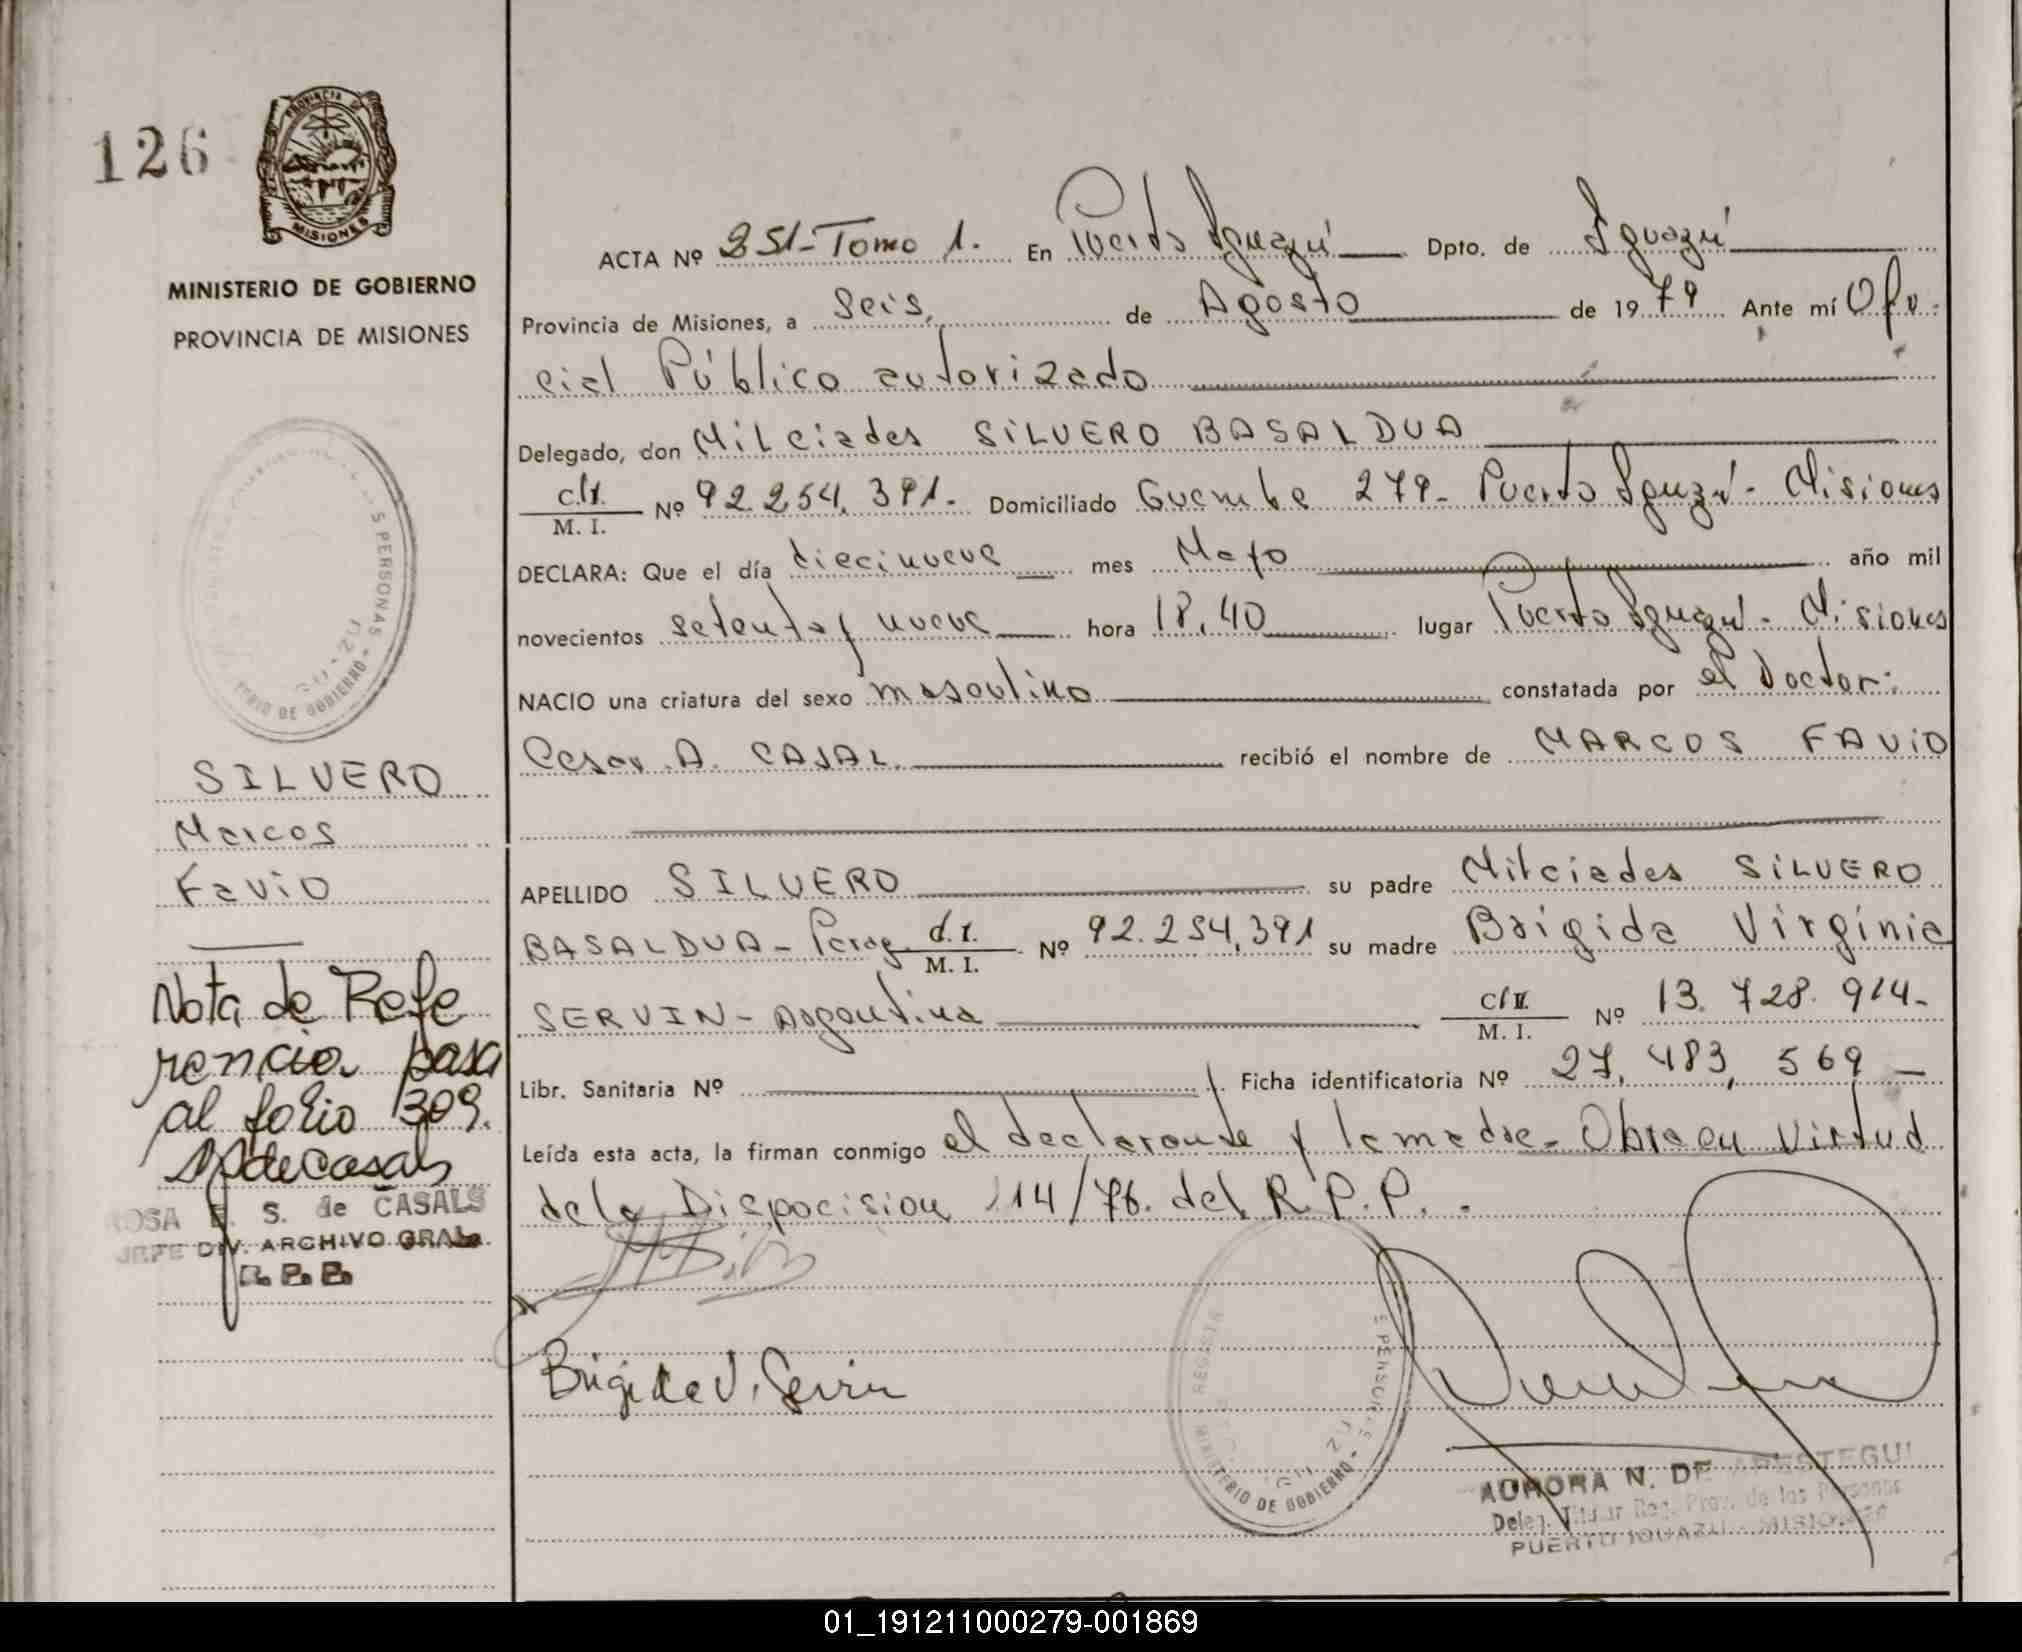 126
PROVINCIA DE
MISIONES
MINISTERIO DE GOBIERNO
PROVINCIA DE MISIONES
ACTA Nº 251-Tomo 1. En Puerto Iguazú Dpto. de Iguazú
Provincia de Misiones, a Seis, de Agosto de 1979 Ante mí Ofi-
cial Público autorizado
Delegado, don Milciades SILVERO BASALDUA
C.I. Nº 92.254.391- Domiciliado Guembe 279- Puerto Iguazú- Misiones
M. I.
DECLARA: Que el día diecinueve mes Mayo año mil
novecientos setenta y nueve hora 18,40 lugar Puerto Iguazú- Misiones
NACIO una criatura del sexo masculino constatada por el Doctor:
Cesar A. CASAL recibió el nombre de MARCOS FAVIO
SILVERO
Marcos
Favio
APELLIDO SILVERO su padre Milciades SILVERO
BASALDUA- Parag. d.I. Nº 92.254.391 su madre Brigida Virginia
M. I.
SERVIN- Argentina C.I. Nº 13.728.914-
M. I.
Libr. Sanitaria Nº Ficha identificatoria Nº 27,483,569-
Leída esta acta, la firman conmigo el declarante y la madre- Obra en virtud
de la Disposicion 14/76. del R.P.P.
Nota de Refe
rencia pasa
al folio 309.
ROSA E. S. de CASALS
JEFE DIV. ARCHIVO GRAL.
R. P. P.
Brigida V. Servin
PERSONAS
MINISTERIO DE GOBIERNO
AURORA N. DE APESTEGUI
Deleg. Titular Reg. Prov. de las Personas
PUERTO IGUAZU - MISIONES
01_191211000279-001869